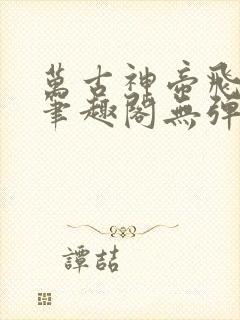 萬古神帝飛
筆趣閣無彈
譚喆